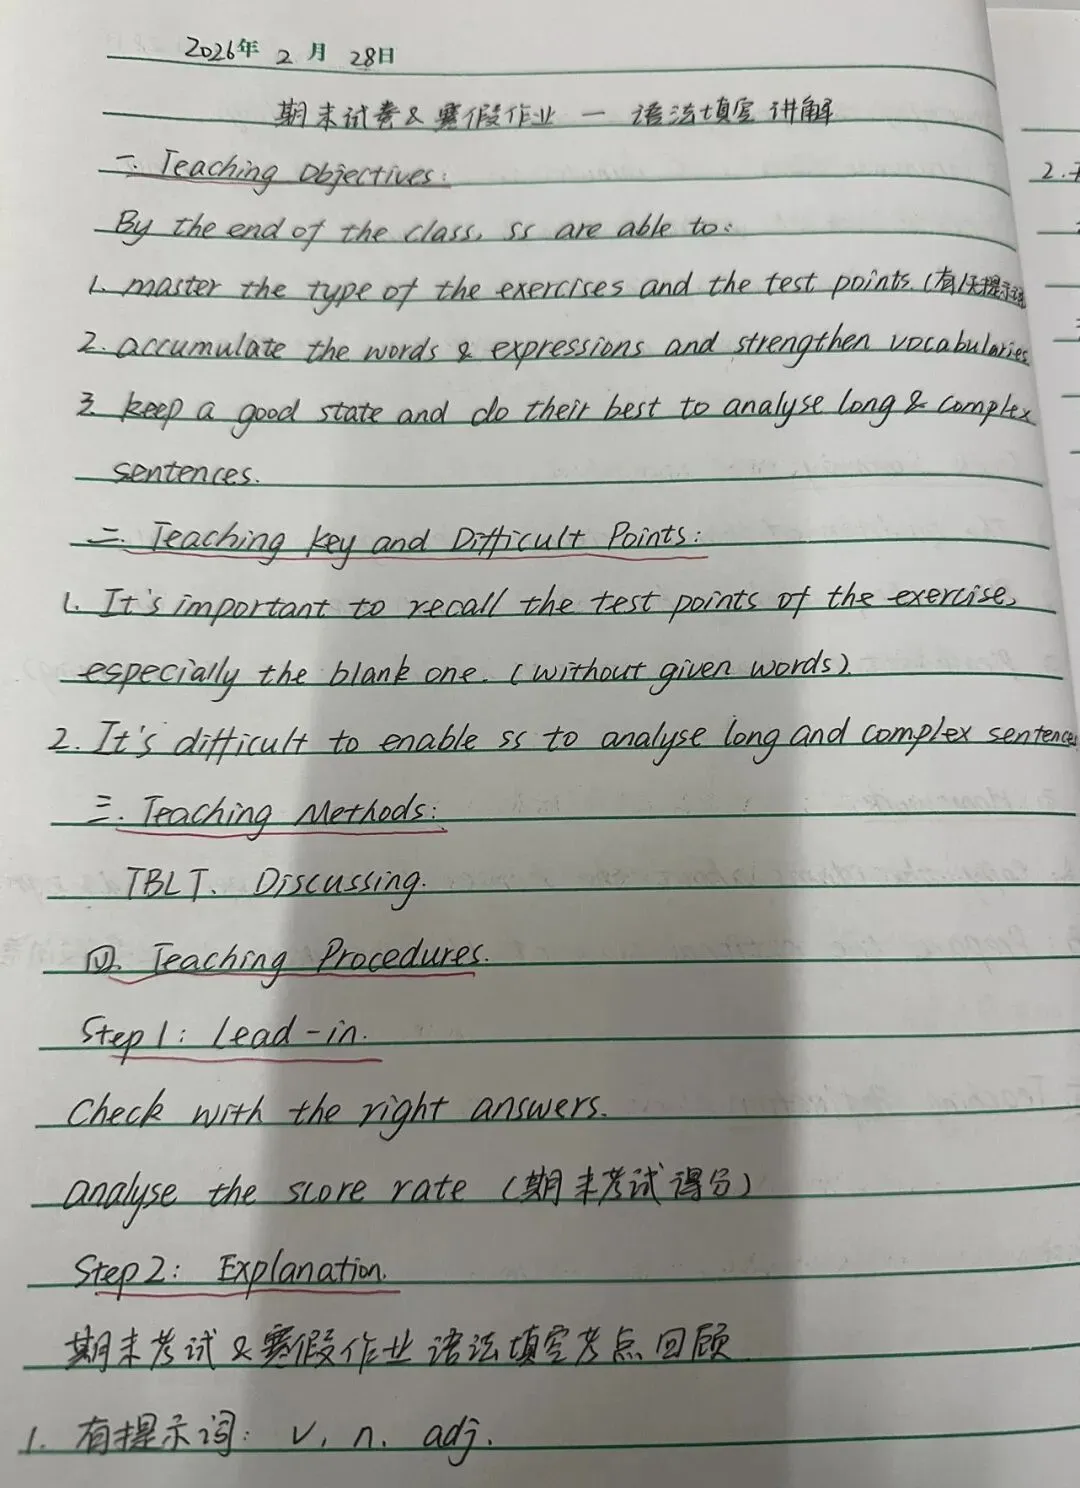 2026年 2 月 28日
期末试卷&寒假作业 — 语法填空 讲解
一. Teaching Objectives:
By the end of the class, ss are able to:
1. master the type of the exercises and the test points. (有/无提示词)
2. accumulate the words & expressions and strengthen vocabularies
3. keep a good state and do their best to analyse long & complex
sentences.
二. Teaching key and Difficult Points:
1. It's important to recall the test points of the exercise,
especially the blank one. (without given words).
2. It's difficult to enable ss to analyse long and complex sentences
三. Teaching Methods:
TBLT. Discussing.
四. Teaching Procedures.
Step 1: Lead-in.
Check with the right answers.
analyse the score rate (期末考试得分)
Step 2: Explanation.
期末考试&寒假作业 语法填空考点回顾
1. 有提示词: v. n. adj.
2.